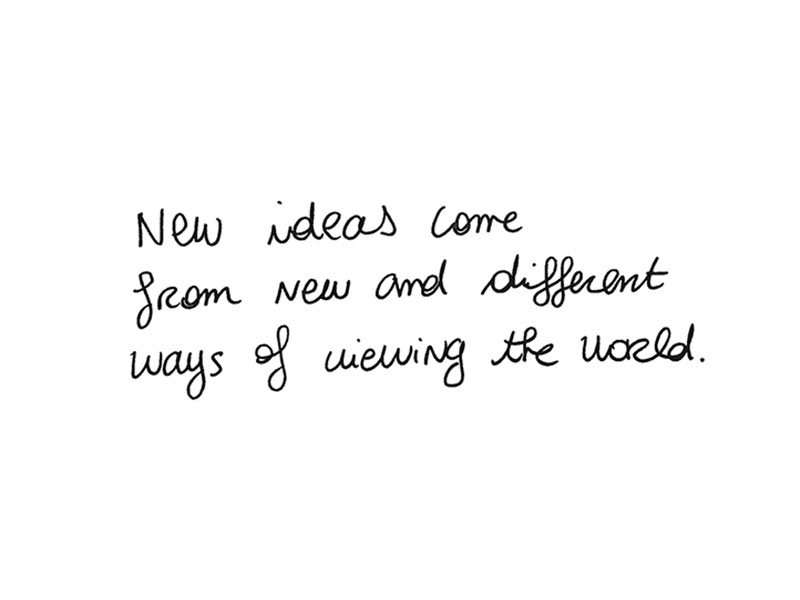 New ideas come
from new and different
ways of viewing the world.